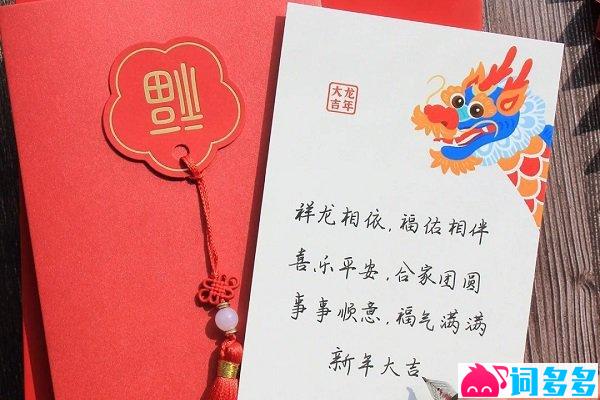 福
龙年
大吉
祥龙相依，福佑相伴
喜乐平安，合家团圆
事事顺意，福气满满
新年大吉
词多多